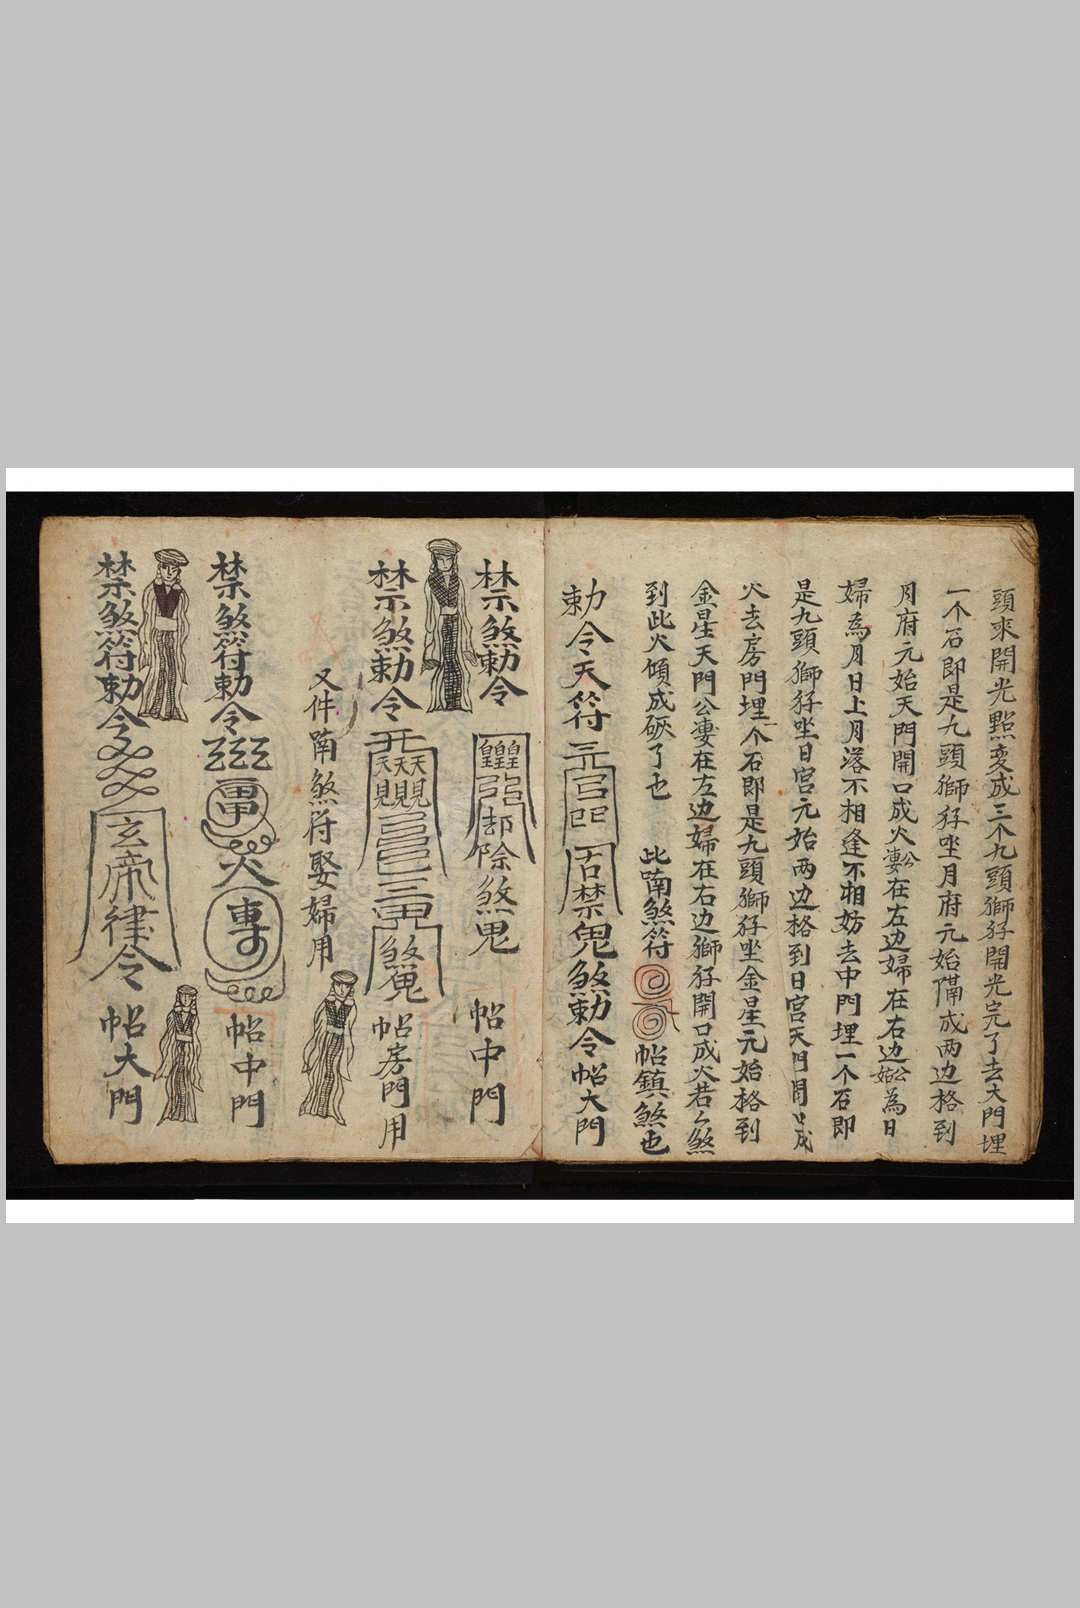 頭來開光點变成三个九頭獅㺃開光完了去大門埋
一个石即是九頭獅㺃坐月府元始隔成两边格到
月府元始天門開口成火公妻在左边婦在右边公為日
婦為月日上月落不相逢不相妨去中門埋一个石即
是九頭獅㺃坐日宫元始两边格到日宫天門開口成
火去房門埋一个石即是九頭獅㺃坐金星元始格到
金星天門公妻在左边婦在右边獅㺃開口成火若么煞
到此火傾成了也 此煞符 帖鎮煞也
勅令天符 古禁鬼煞勅令帖大門
禁煞勅令 却除煞鬼 帖中門
禁煞勅令 天天天見見見 煞 帖房門用
又件煞符娶婦用
禁煞符勅令 火 專 帖中門
禁煞符勅令 玄帝律令 帖大門